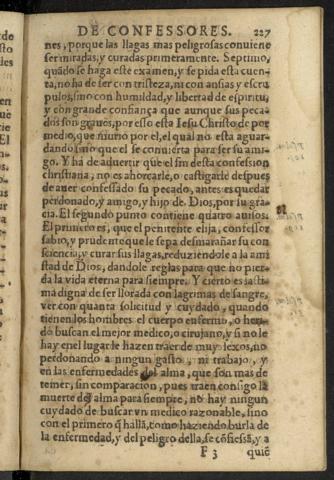 DE CONFESSORES. 227
nes, porque las llagas mas peligrosas conuiene
ser miradas, y curadas primeramente. Septimo,
quãdo se haga este examen, y se pida esta cuen-
ta, no ha de ser con tristeza, ni con ansias y escru
pulos, sino con humildad, y libertad de espiritu,
y con grande confiança que aunque sus peca-
dos son graues, por esso esta Iesu Christo de por
medio, que murio por el, el qual no esta aguar-
dando sino que el se conuierta para ser su ami-
go. Y ha de aduertir que el fin desta confession
christiana, no es ahorcarle, o castigarle despues
de auer confessado su pecado, antes es quedar
perdonado, y amigo, y hijo de Dios, por su gra-
cia. El segundo punto contiene quatro auisos.
El primero es, que el penitente elija, confessor
sabio, y prudente que le sepa desmarañar su con
sciencia, y curar sus llagas, reduziendole a la ami
stad de Dios, dandole reglas para que no pier-
da la vida eterna para siempre. Y cierto es lasti-
ma digna de ser llorada con lagrimas de sangre,
ver con quanta solicitud y cuydado, quando
tienen los hombres el cuerpo enfermo, o heri-
do buscan el mejor medico, o cirujano, y si no le
hay en el lugar le hazen traer de muy lexos, no
perdonando a ningun gasto, ni trabajo, y
en las enfermedades del alma, que son mas de
temer, sin comparacion, pues traen consigo la
muerte del alma para siempre, no hay ningun
cuydado de buscar vn medico razonable, sino
con el primero q̃ hallã, como haziendo burla de
la enfermedad, y del peligro della, se cõfiessã, y a
F 3 quiẽ